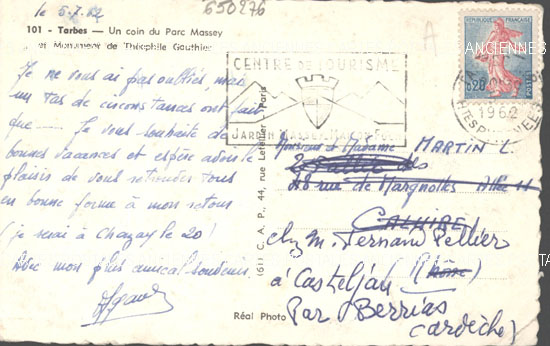 le 5.7.62
650276
101 - Tarbes - Un coin du Parc Massey
et Monument de Théophile Gauthier
Je ne vous ai pas oubliés, mais
un tas de circonstances ont fait
que — Je vous souhaite de
bonnes vacances et espère avoir le
plaisir de vous retrouver tous
en bonne forme à mon retour
(je serai à Chazay le 20!
Avec mon plus amical souvenir.
CENTRE DE TOURISME
JARDIN MASSEY
1611 C. A. P., 44, rue Letellier - Paris
Réal Photo
REPUBLIQUE FRANÇAISE
0,20
POSTES
1962
ANCIENNES
A
Monsieur et Madame MARTIN L.
48 rue de Margnolles
CALUIRE
chez M. Fernand Pellier
à Casteljau (Rhône)
Par Berrias
(Ardèche)